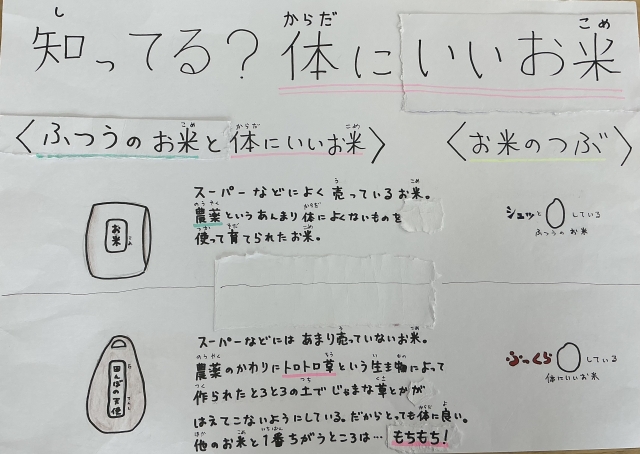 知ってる？体にいいお米
〈ふつうのお米と体にいいお米〉
〈お米のつぶ〉
スーパーなどによく売っているお米。
農薬というあんまり体によくないものを
使って育てられたお米。
お米
シュッと0している
ふつうのお米
スーパーなどにはあまり売っていないお米。
農薬のかわりにトロトロ草という生き物によって
作られたとろとろの土でじゃまな草とかが
はえてこないようにしている。だからとっても体に良い。
他のお米と1番ちがうところは…もちもち！
田んぼの天使
ぷっくら0している
体にいいお米